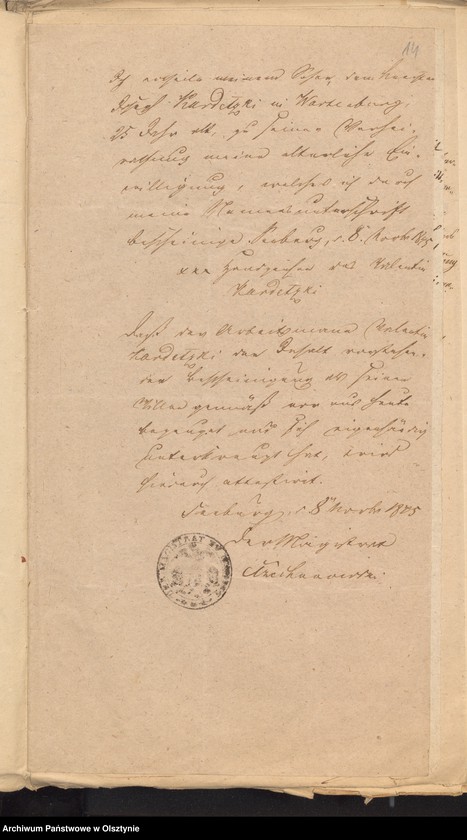 14
Ich ertheile meinem Sohn, dem Knecht
Joseph Kardetzki in Wartenburg,
25 Jahr alt, zu seiner Verhei-
rathung meine elterliche Ein-
willigung, welches ich durch
meine Namensunterschrift
bescheinige. Seeburg, d. 8. Novbr 1875
xxx Handzeichen des Valentin
Kardetzki
Daß der Arbeitsmann Valentin
Kardetzki den Inhalt vorstehen-
der Bescheinigung als seinem
Willen gemäß vor uns heute
und sich eigenhändig
unterkreuzt hat, wird
hierdurch attestirt.
Seeburg, d 8 Novbr 1875
Der Magistrat
DER MAGISTRAT ZU
Archiwum Państwowe w Olsztynie